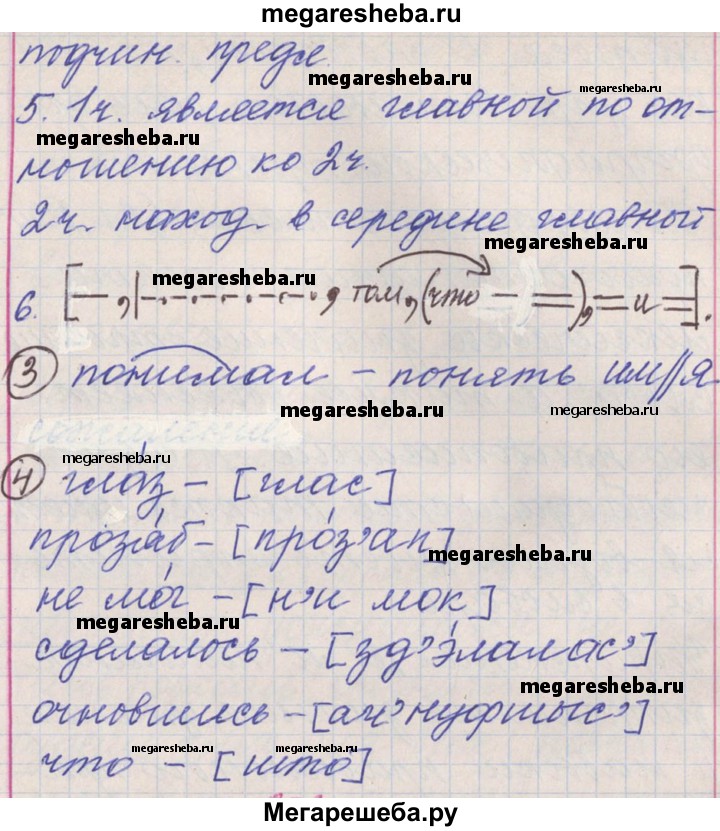 megaresheba.ru
подчин. предл.
megaresheba.ru
megaresheba.ru
5. 1ч. является главной по от-
megaresheba.ru
ношению ко 2ч.
2ч. наход. в середине главной
megaresheba.ru
6. [—,|-·-·-·-·-·, том, (что — =), = и =].
megaresheba.ru
3 понимал – понять им//я
megaresheba.ru
megaresheba.ru
megaresheba.ru
4 гла́з – [глас]
прозя́б – [про́з'ап]
megaresheba.ru
не мо́г – [н'и мок]
megaresheba.ru
сделалось – [зд'э́лалас']
megaresheba.ru
очновшись – [ач'нуфшыс']
megaresheba.ru
megaresheba.ru
что – [што]
Мегарешеба.ру